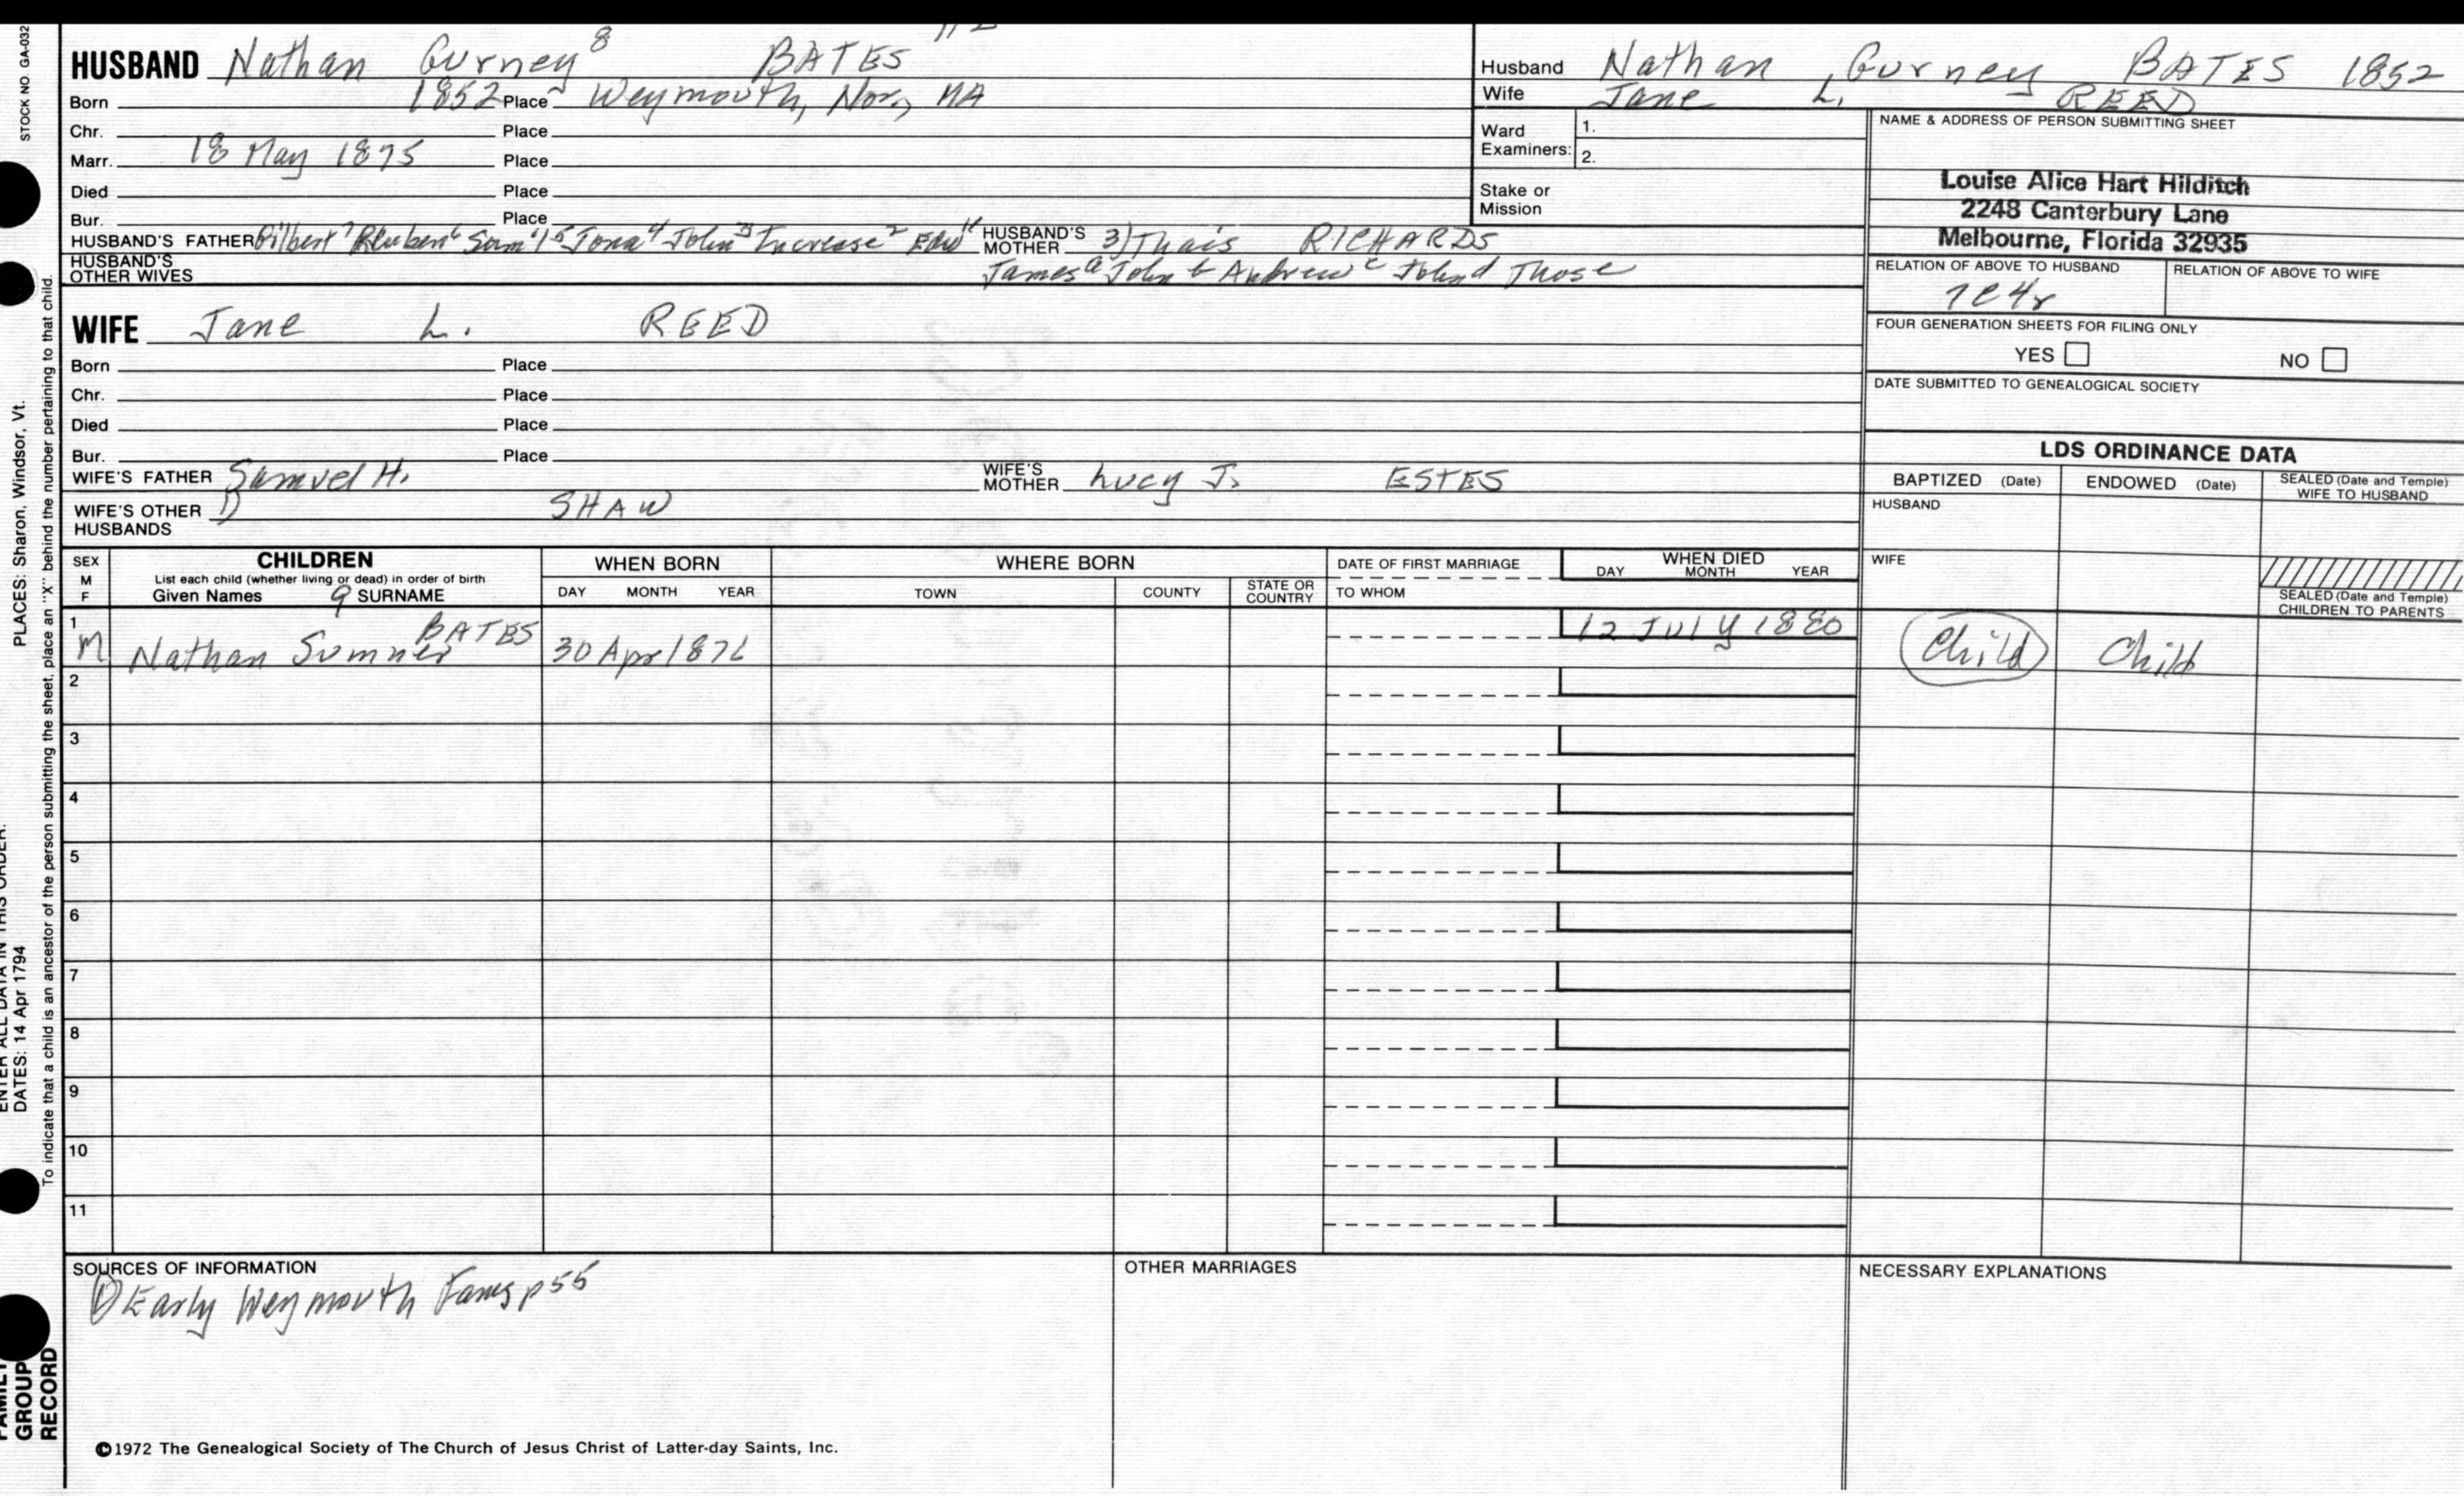 STOCK NO GA-032
HUSBAND Nathan Gurney⁸ BATES
Husband Nathan Gurney BATES 1852
Wife Jane L. REED
Born 1852 Place Weymouth, Nor, MA
Chr. Place
Marr. 18 May 1875 Place
Died Place
Bur. Place
HUSBAND'S FATHER Gilbert⁷ Reuben⁶ Sam'l⁵ Jona⁴ John³ Increase² Edw¹ HUSBAND'S MOTHER 3) Thais RICHARDS
HUSBAND'S OTHER WIVES
James a John b Andrew c John d Thos e
Ward Examiners: 1.
2.
Stake or Mission
NAME & ADDRESS OF PERSON SUBMITTING SHEET
Louise Alice Hart Hilditch
2248 Canterbury Lane
Melbourne, Florida 32935
RELATION OF ABOVE TO HUSBAND RELATION OF ABOVE TO WIFE
7C4r
FOUR GENERATION SHEETS FOR FILING ONLY
YES NO
DATE SUBMITTED TO GENEALOGICAL SOCIETY
WIFE Jane L. REED
Born Place
Chr. Place
Died Place
Bur. Place
WIFE'S FATHER Samuel H. WIFE'S MOTHER Lucy J. ESTES
WIFE'S OTHER HUSBANDS 1) SHAW
LDS ORDINANCE DATA
BAPTIZED (Date) ENDOWED (Date) SEALED (Date and Temple)
WIFE TO HUSBAND
HUSBAND
WIFE
SEALED (Date and Temple)
CHILDREN TO PARENTS
SEX
M
F
CHILDREN
List each child (whether living or dead) in order of birth
Given Names 9 SURNAME
WHEN BORN
DAY MONTH YEAR
WHERE BORN
TOWN COUNTY STATE OR COUNTRY
DATE OF FIRST MARRIAGE
TO WHOM
WHEN DIED
DAY MONTH YEAR
1 M Nathan Sumner BATES 30 Apr 1876 12 JULY 1880 Child Child
2
3
4
5
6
7
8
9
10
11
SOURCES OF INFORMATION
① Early Weymouth Fams p55
OTHER MARRIAGES
NECESSARY EXPLANATIONS
©1972 The Genealogical Society of The Church of Jesus Christ of Latter-day Saints, Inc.
PLACES: Sharon, Windsor, Vt.
ENTER ALL DATA IN THIS ORDER:
DATES: 14 Apr 1794
To indicate that a child is an ancestor of the person submitting the sheet, place an "X" behind the number pertaining to that child.
FAMILY
GROUP
RECORD